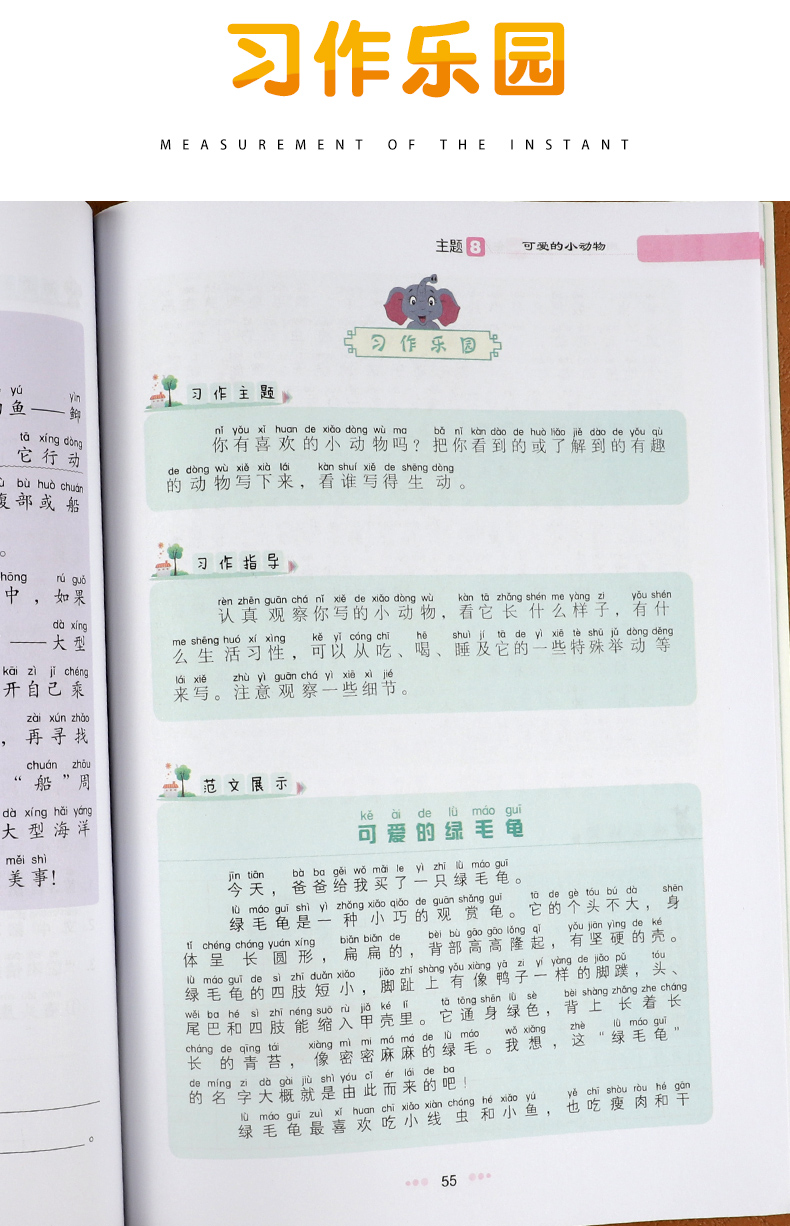 习作乐园
MEASUREMENT OF THE INSTANT
主题8 可爱的小动物
习作乐园
习作主题
nǐ yǒu xǐ huan de xiǎo dòng wù ma bǎ nǐ kàn dào de huò liǎo jiě dào de yǒu qù
你有喜欢的小动物吗？把你看到的或了解到的有趣
de dòng wù xiě xià lái kàn shuí xiě de shēng dòng
的动物写下来，看谁写得生动。
习作指导
rèn zhēn guān chá nǐ xiě de xiǎo dòng wù kàn tā zhǎng shén me yàng zi yǒu shén
认真观察你写的小动物，看它长什么样子，有什
me shēng huó xí xìng kě yǐ cóng chī hē shuì jí tā de yì xiē tè shū jǔ dòng děng
么生活习性，可以从吃、喝、睡及它的一些特殊举动等
lái xiě zhù yì guān chá yì xiē xì jié
来写。注意观察一些细节。
范文展示
kě ài de lǜ máo guī
可爱的绿毛龟
jīn tiān bà ba gěi wǒ mǎi le yì zhī lǜ máo guī
今天，爸爸给我买了一只绿毛龟。
lǜ máo guī shì yì zhǒng xiǎo qiǎo de guān shǎng guī tā de gè tóu bú dà shēn
绿毛龟是一种小巧的观赏龟。它的个头不大，身
tǐ chéng cháng yuán xíng biǎn biǎn de bèi bù gāo gāo lóng qǐ yǒu jiān yìng de ké
体呈长圆形，扁扁的，背部高高隆起，有坚硬的壳。
lǜ máo guī de sì zhī duǎn xiǎo jiǎo zhǐ shàng yǒu xiàng yā zi yí yàng de jiǎo pǔ tóu
绿毛龟的四肢短小，脚趾上有像鸭子一样的脚蹼，头、
wěi ba hé sì zhī néng suō rù jiǎ ké lǐ tā tōng shēn lǜ sè bèi shàng zhǎng zhe cháng
尾巴和四肢能缩入甲壳里。它通身绿色，背上长着长
cháng de qīng tái xiàng mì mì má má de lǜ máo wǒ xiǎng zhè lǜ máo guī
长的青苔，像密密麻麻的绿毛。我想，这“绿毛龟”
de míng zi dà gài jiù shì yóu cǐ ér lái de ba
的名字大概就是由此而来的吧！
lǜ máo guī zuì xǐ huan chī xiǎo xiàn chóng hé xiǎo yú yě chī shòu ròu hé gān
绿毛龟最喜欢吃小线虫和小鱼，也吃瘦肉和干
55
yú yìn
鱼——䲟
tā xíng dòng
它行动
bù huò chuán
腹部或船
。
zhōng rú guǒ
中，如果
dà xíng
——大型
kāi zì jǐ chéng
开自己乘
zài xún zhǎo
，再寻找
chuán zhōu
“船”周
dà xíng hǎi yáng
大型海洋
měi shì
美事！
。